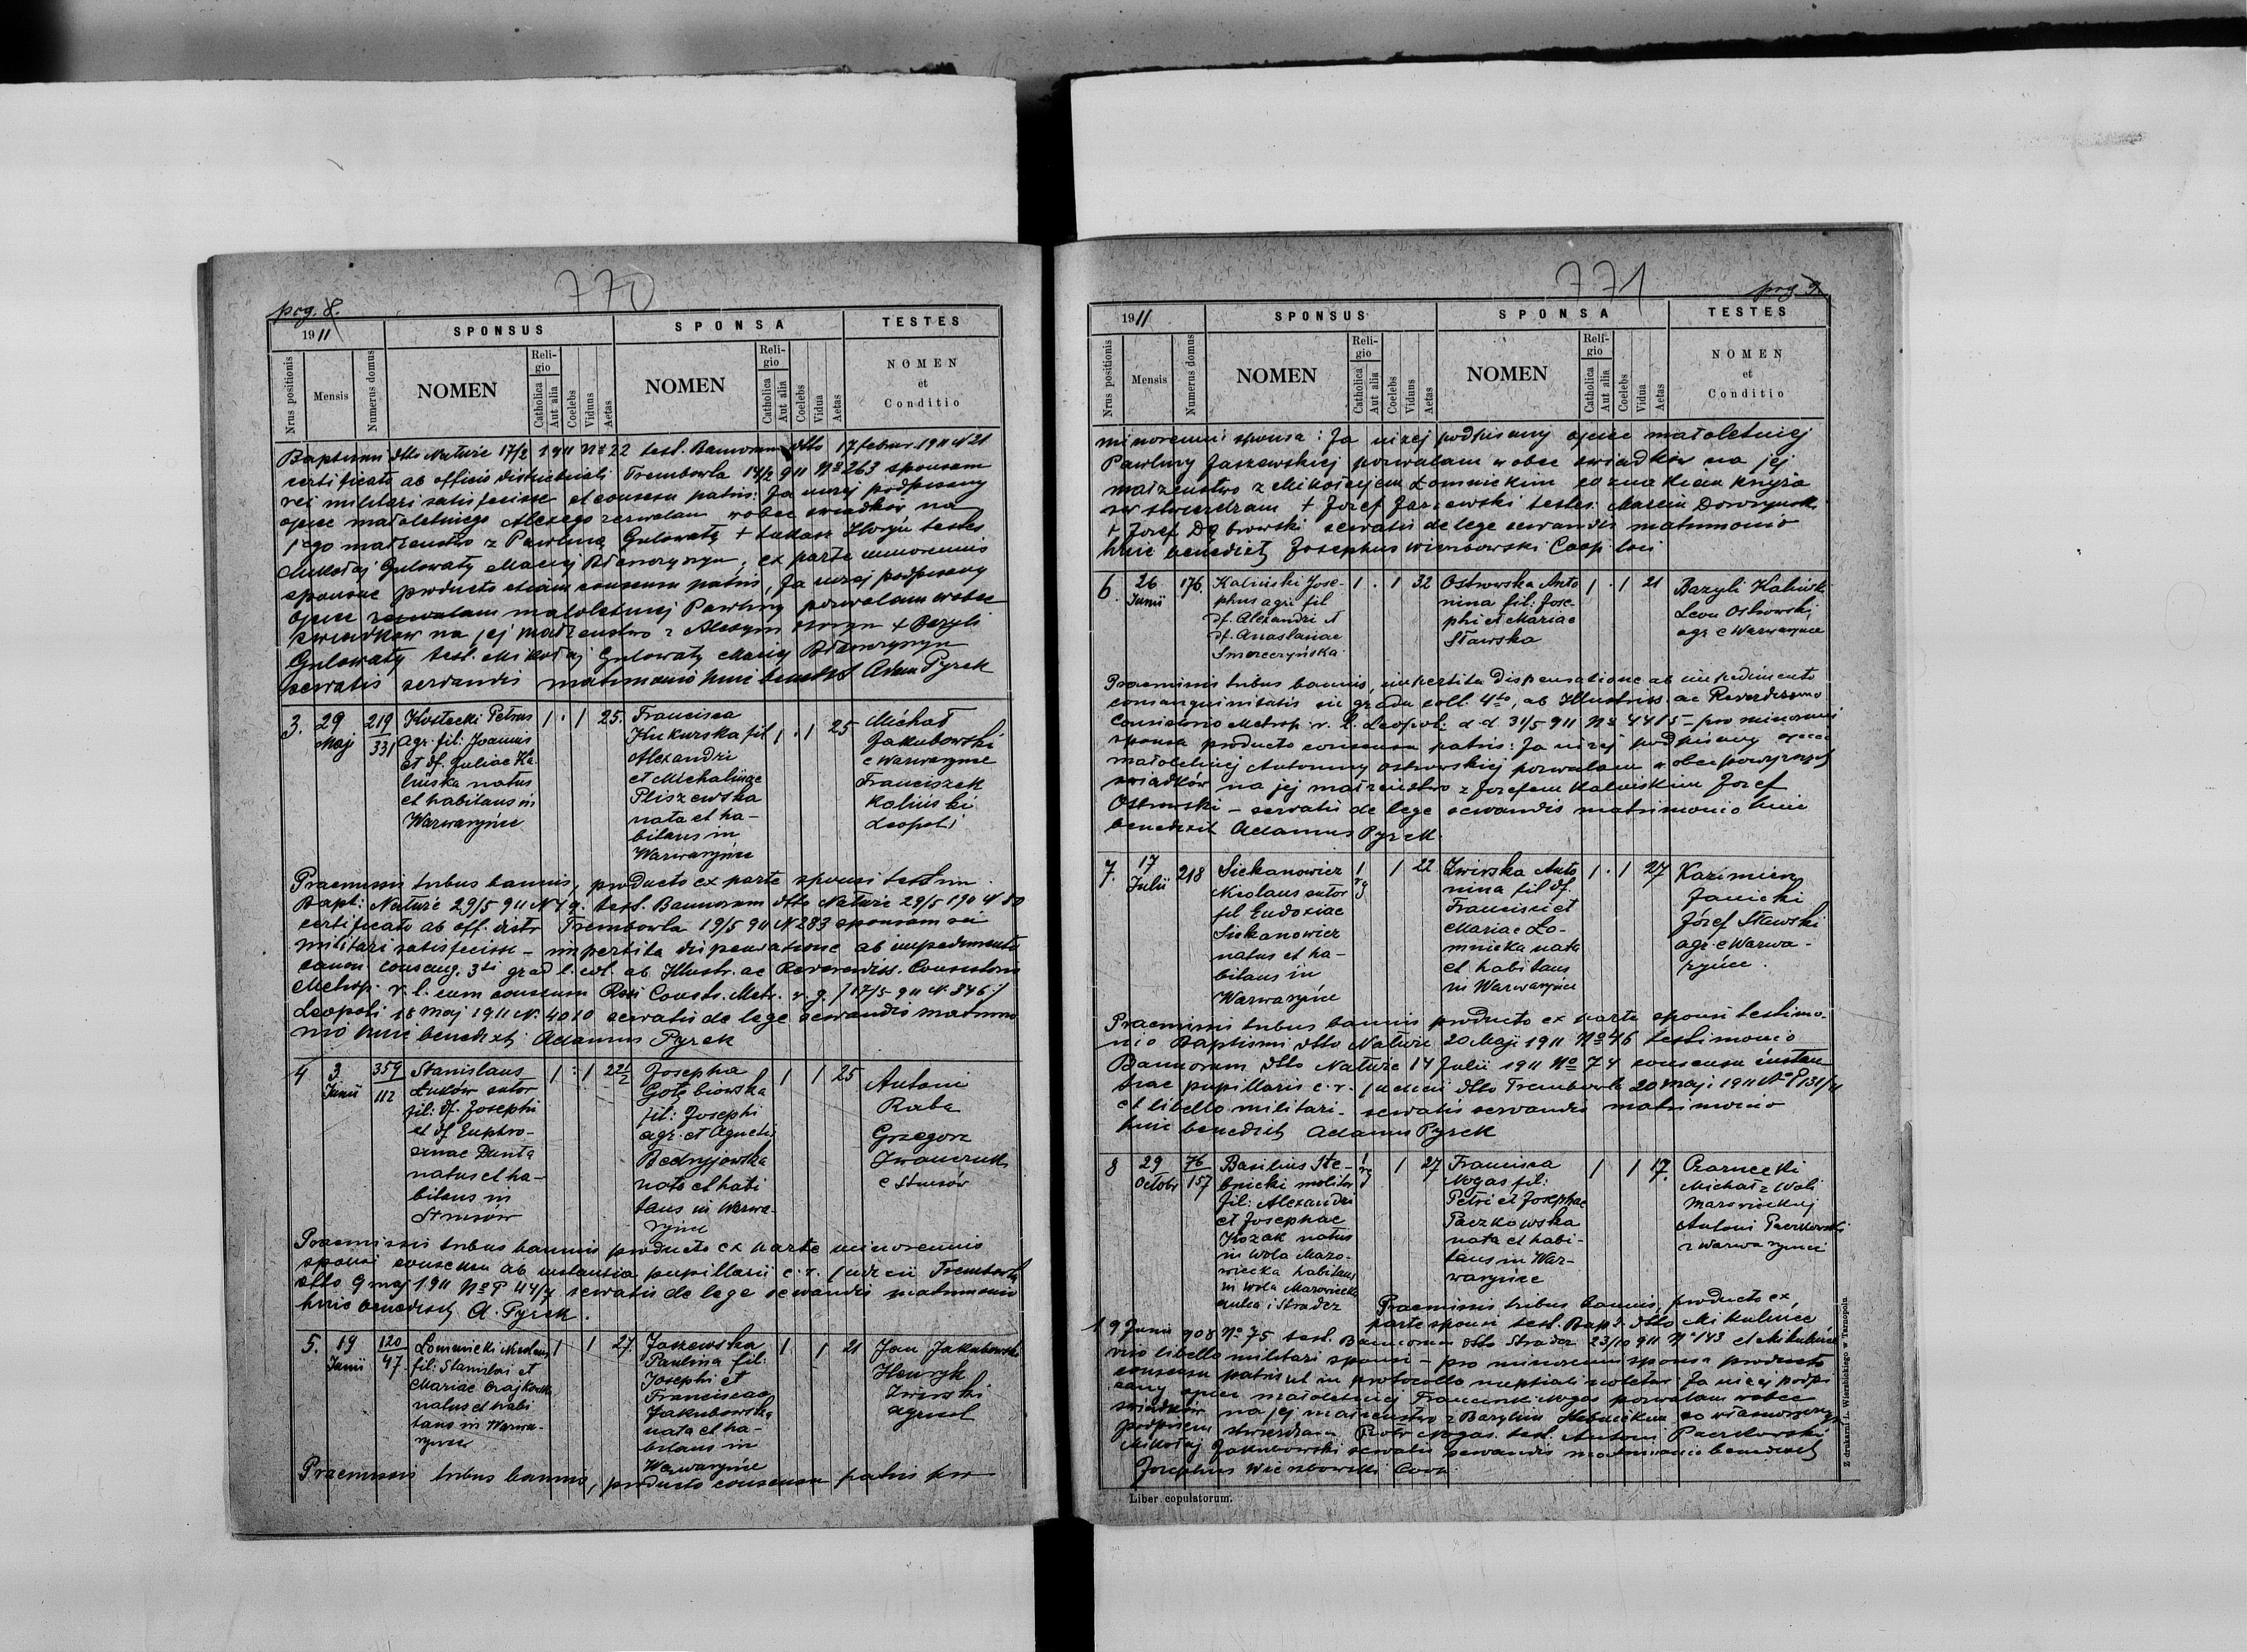 770
pag. 8.
1911
SPONSUS
SPONSA
TESTES
Nrus positionis
Mensis
Numerus domus
NOMEN
Religio
Catholica
Aut alia
Coelebs
Viduus
Aetas
NOMEN
Religio
Catholica
Aut alia
Coelebs
Vidua
Aetas
NOMEN
et
Conditio
Baptismi dtto Naturie 17/2 1911 No 22 test. Bannorum dtto 17 febru. 1911 N 21
certificato ab officio districtuali Trembowla 14/2 911 No 263 sponsam
rei militari satisfecisse et consensu patris: Ja niżej podpisany
ojciec małoletniego Alexego zezwalam wobec świadków na
jego małżeństwo z Pawliną Gulowatą + Łukasz testes
Mikołaj Gulowaty Maciej ex parte minorennis
sponsae producto etiam consensu patris, Ja niżej podpisany
ojciec zezwalam małoletniej Pawliny pozwalam wobec
świadków na jej małżeństwo z Alexym + Bazyli
Gulowaty test. Mikołaj Gulowaty Maciej
servatis servandis matrimonio huic benedixit Adam Pyrek
3.
29
Maji
219
331
Kostecki Petrus
agr. fil: Joannis
et df. Juliae Ka-
lińska natus
et habitans in
Warwaryńce
1 . 1 25.
Francisca
Kukurska fil
Alexandri
et Michalinae
Pliszewska
nata et ha-
bitans in
Warwaryńce
1 . 1 25
Michał
Jakubowski
e Warwaryńce
Franciszek
Kaliński
Leopoli
Praemissis tribus bannis, producto ex parte sponsi testim
Bapt: Naturie 29/5 911 N 49. test. Bannorum dtto Naturie 29/5 190 N 80
certificato ab off. distr Trembowla 19/5 911 N 283 sponsam rei
militari satisfecisse – impertita dispensatione ab impedimento
canon. consang. 3ti grad l. col. ab Illustr. ac Reverendiss. Consistorio
Metrop. r. l. cum consensu Rssi Consist. Metr. r. g. /17/5 911 N. 846/
Leopoli 18 Maj 1911 N. 4010 servatis de lege servandis matrimo
nio huic benedixit Adamus Pyrek
4
3
Junii
359
112
Stanislaus
Łuków sutor
fil: df. Josephi
et df Euphro-
sinae Dunta
natus et ha-
bitans in
Strusów
1 : 1 22 1/2
Josepha
Gołębiowska
fil: Josephi
agr. et Agnetis
Bednyjowska
nata et habi
tans in Warwa-
ryńce
1 1 25
Antoni
Raba
Grzegorz
Iwańczuk
e Strusów
Praemissis tribus bannis producto ex parte minorennis
sponsi consensu ab instantia pupillarii c. r. judicii Trembowla
dtto 9 maj 1911 No P 44/7 servatis de lege servandis matrimonio
huic benedixit A. Pyrek.
5.
19
Junii
120
47
Łomnicki Nicolaus
fil: Stanislai et
Mariae Czajkowska
natus et habi
tans in Warwa-
ryńce
1 1 27.
Jaszewska
Paulina fil:
Josephi et
Franciscae
Jakubowska
nata et ha-
bitans in
Warwaryńce
1 1 21
Jan Jakubowski
Henryk
Zwirski
agricol
Praemissis tribus bannis, producto consensu patris pro
771
pag 9.
1911
SPONSUS
SPONSA
TESTES
Nrus positionis
Mensis
Numerus domus
NOMEN
Religio
Catholica
Aut alia
Coelebs
Viduus
Aetas
NOMEN
Religio
Catholica
Aut alia
Coelebs
Vidua
Aetas
NOMEN
et
Conditio
minorenni sponsa: Ja niżej podpisany ojciec małoletniej
Pawliny Jaszewskiej pozwalam wobec świadków na jej
małżeństwo z Mikołajem Łomnickim co znakiem krzyża
św stwierdzam + Józef Jaszewski testes: Marcin
+ Józef Dąbrowski servatis de lege servandis matrimonio
huic benedixit Josephus Wierzbowski Coop. loci
6.
26
Junii
176.
Kaliński Jose-
phus agri fil
df. Alexandri et
df. Anastasiae
Smereczyńska
1 . 1 32
Ostrowska Anto
nina fil: Jose-
phi et Mariae
Sławska
1 . 1 21
Bazyli Kaliński
Leon Ostrowski
agr. e Warwaryńce
Praemissis tribus bannis, impertita dispensatione ab impedimento
consanguinitatis in gradu coll. 4to, ab Illustriss. ac Reverdissimo
Consistorio Metrop. r. l. Leopol: d d 31/5 911 No 4415 – pro minorenni
sponsa producto consensu patris: Ja niżej podpisany ojciec
małoletniej Antoniny Ostrowskiej pozwalam wobec powyższych
świadków na jej małżeństwo z Józefem Kalińskim Józef
Ostrowski – servatis de lege servandis matrimonio huic
benedixit Adamus Pyrek.
7.
17
Julii
218
Siekanowicz
Nicolaus sutor
fil Eudoxiae
Siekanowicz
natus et ha-
bitans in
Warwaryńce
1 rg 1 22
Zwirska Anto
nina fil df.
Francisci et
Mariae Ło-
mnicka nata
et habitans
in Warwaryńce
1 . 1 27
Kazimierz
Janicki
Józef Sławski
agr. e Warwa-
ryńce.
Praemissis tribus bannis producto ex parte sponsi testimo-
nio Baptismi dtto Naturie 20 Maji 1911 No 46 testimonio
Bannorum dtto Naturie 14 Julii 1911 No 74 consensu instan
tiae pupillaris c. r. judicii dtto Trembowla 20 maji 1911 No P 131/4
et libello militari – servatis servandis matrimonio
huic benedixit Adamus Pyrek
8
29
Octobr
76
157
Basilius Ste-
bnicki molitor
fil: Alexandri
et Josephae
Kozak natus
in Wola Mazo-
wiecka habitans
in Wola Mazowiecka
1 rg 1 27
Francisca
Nogas fil:
Petri et Josephae
Paczkowska
nata et habi-
tans in War-
waryńce
1 1 17.
Czarnecki
Michał z Woli
Mazowieckiej
Antoni Paczkowski
z Warwaryniec
Praemissis tribus bannis, producto ex
parte sponsi test. Bapt. dtto Mikulińce
19 Junii 908 No 75 test. Bannorum dtto 23/10 911 No 143 et Mikuliń
libello militari sponsi – pro minorenni sponsa producto
consensu patris ut in protocollo nuptiali notetur Ja niżej podpi
sany ojciec małoletniej Franciszki Nogas pozwalam wobec
świadków na jej małżeństwo z Bazylim Stebnickim co własnoręcznym
podpisem stwierdzam Piotr Nogas. test. Antoni Paczkowski
Mikołaj Jakubowski servatis servandis matrimonio benedixit
Josephus Wierzbowski Coop.
Z drukarni L. Wierzbickiego w Tarnopolu
Liber copulatorum.